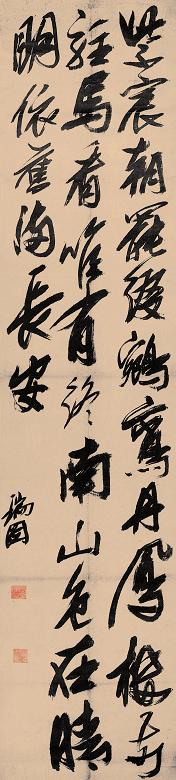 紫宸朝罷綴鵷鸞丹鳳樓前
駐馬看唯有終南山色在晴
明依舊滿長安
瑞圖